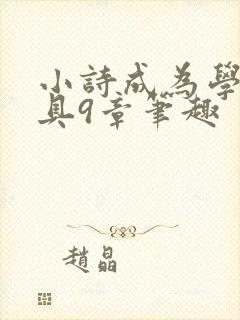 小詩成為學
具9章筆趣
趙晶